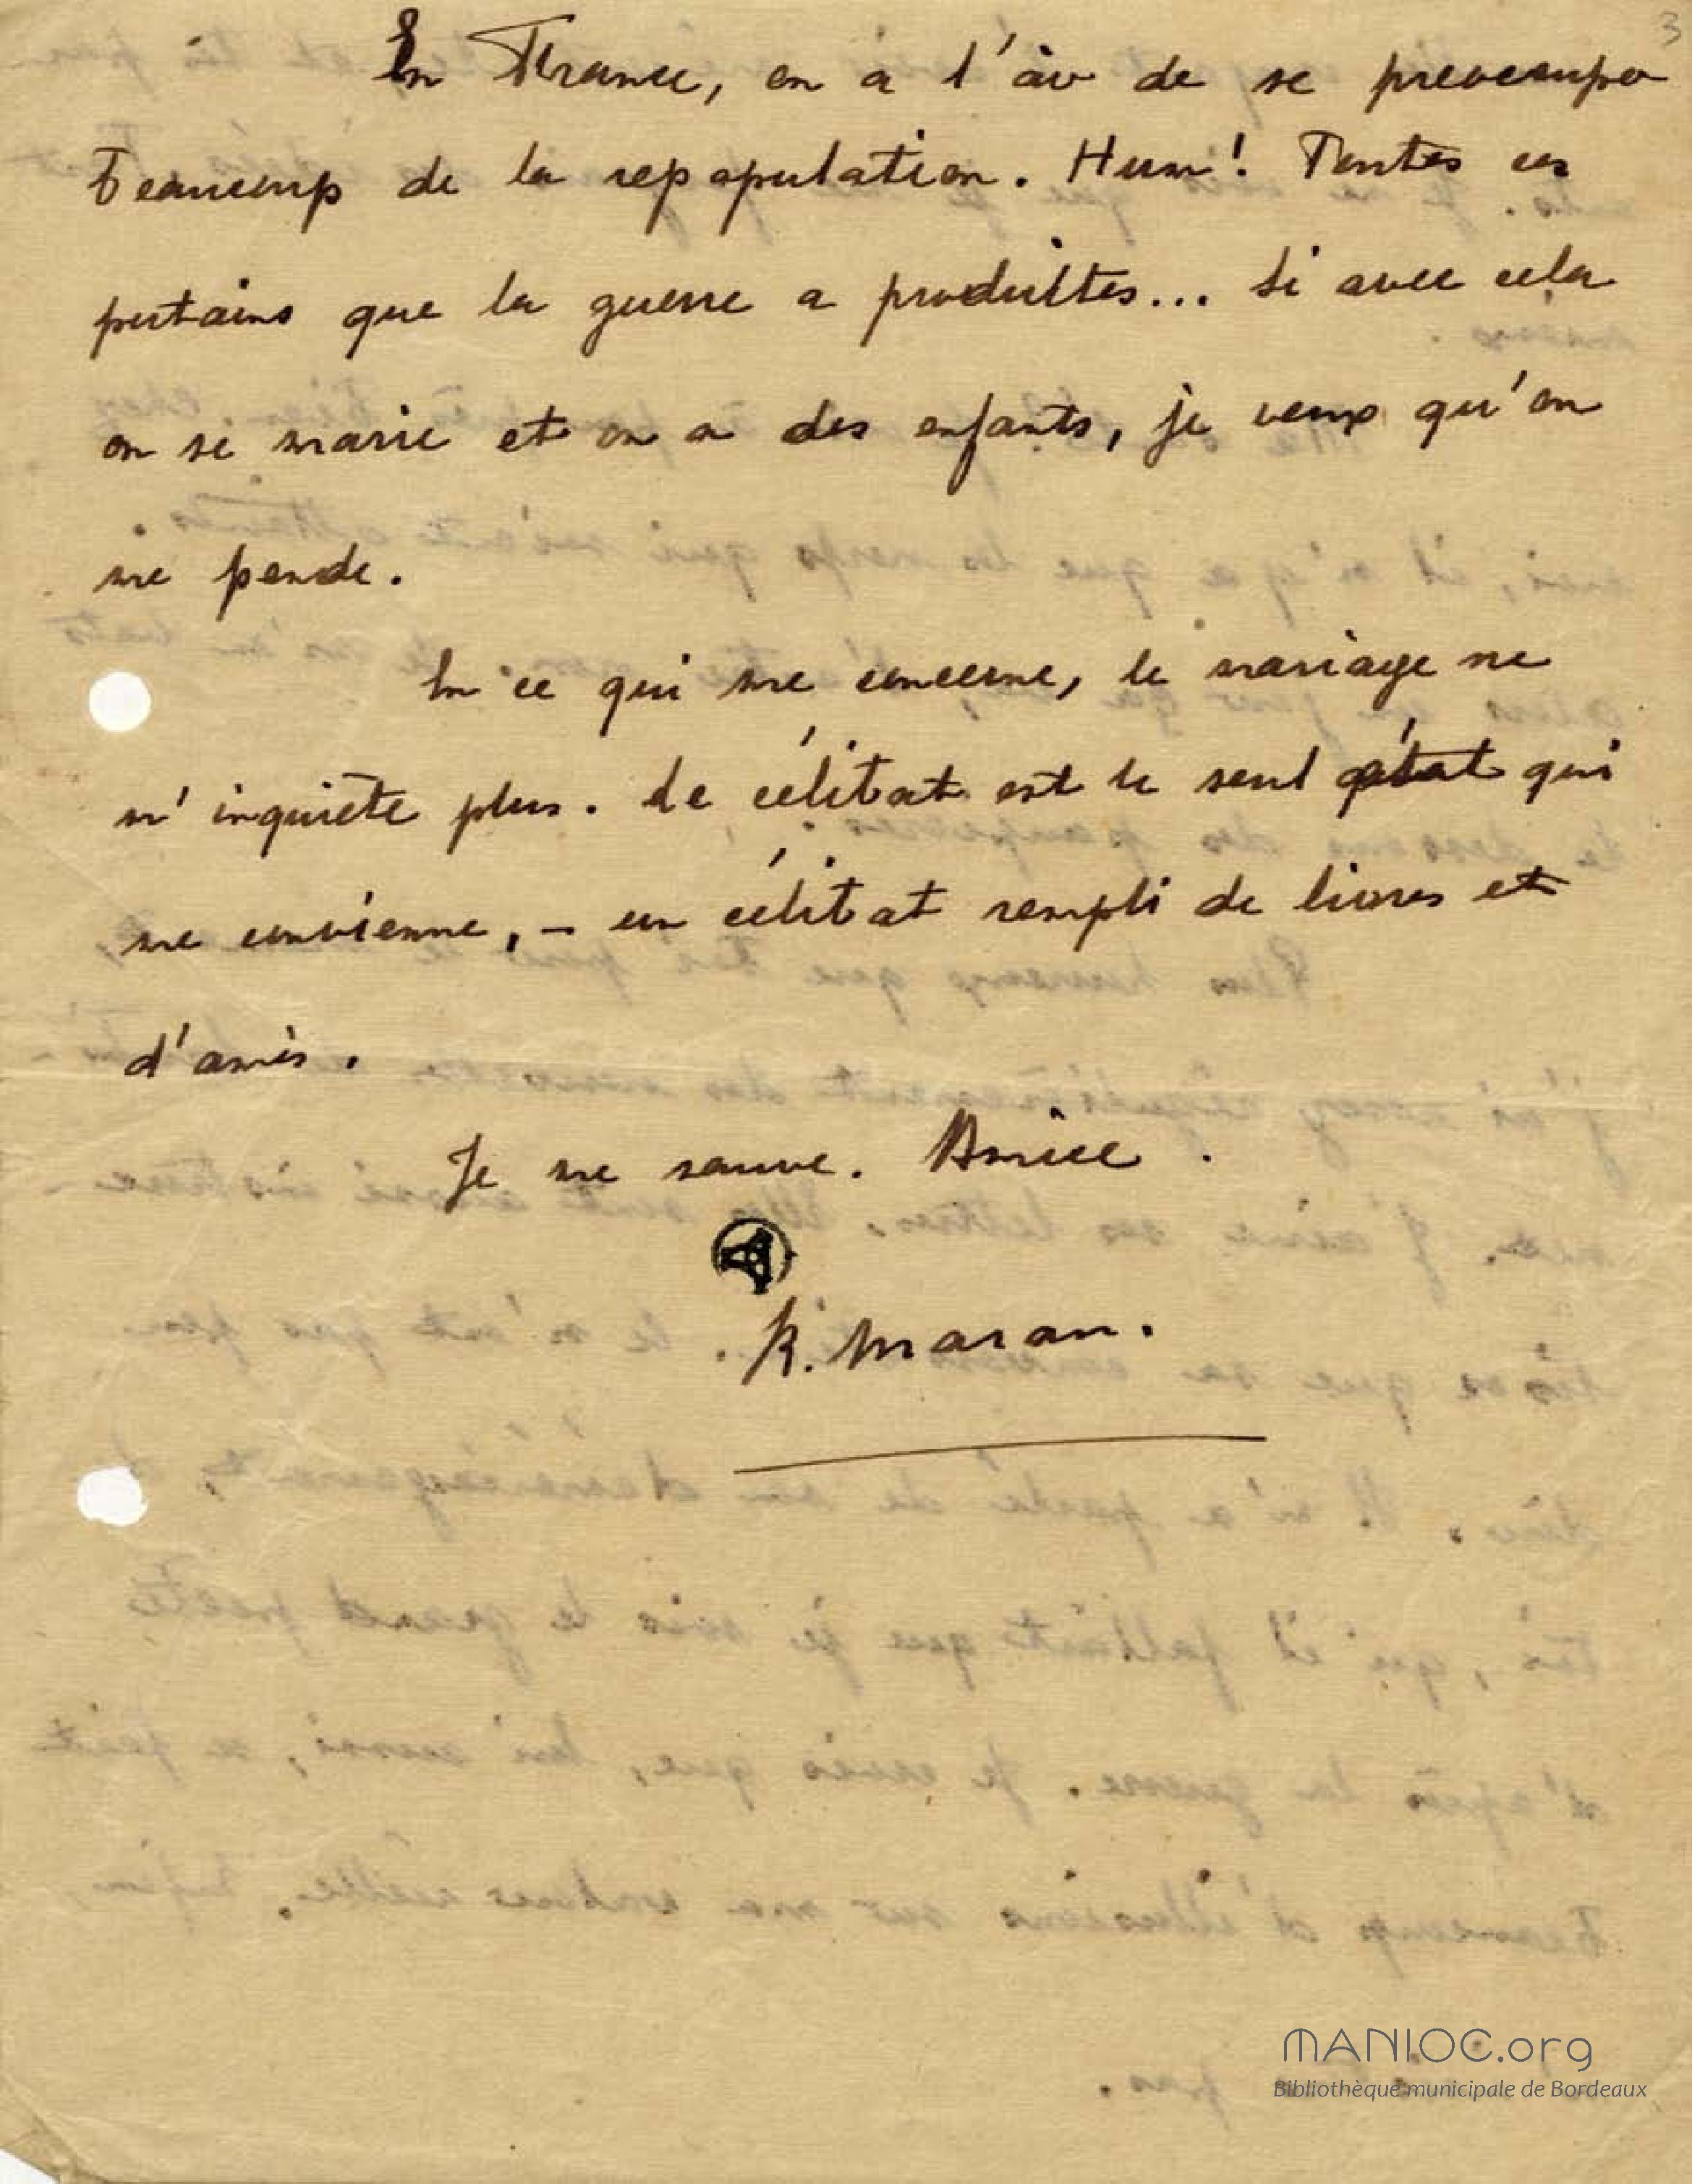 3
En France, on a l'air de se préoccuper
beaucoup de la repopulation. Hum! Toutes ces
putains que la guerre a produites... Si avec cela
on se marie et on a des enfants, je veux qu'on
me pende.
En ce qui me concerne, le mariage ne
m'inquiète plus. Le célibat est le seul état qui
me convienne, – un célibat rempli de livres et
d'amis.
Je me sauve. Amice.
R. Maran.
MANIOC.org
Bibliothèque municipale de Bordeaux